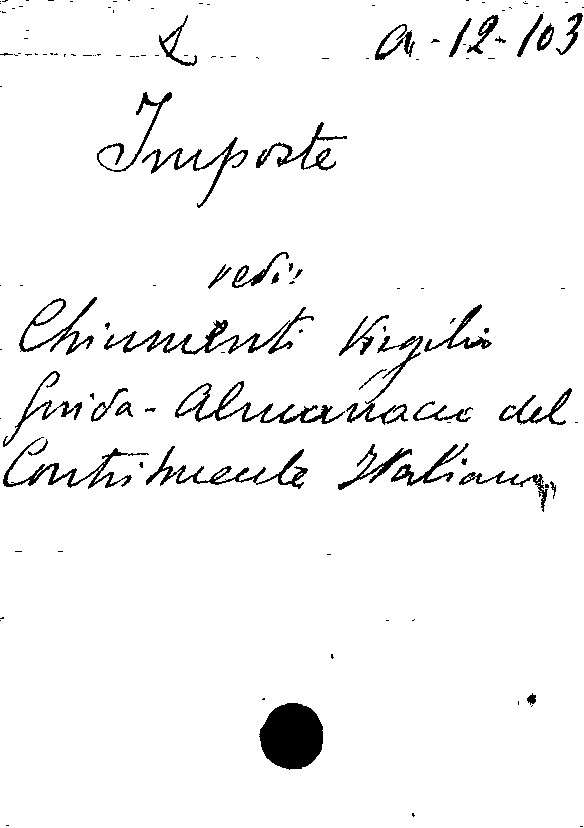 a-12-103
Imposte
vedi:
Chiumenti Virgilio
Guida-Almanacco del
Contribuente Italiano